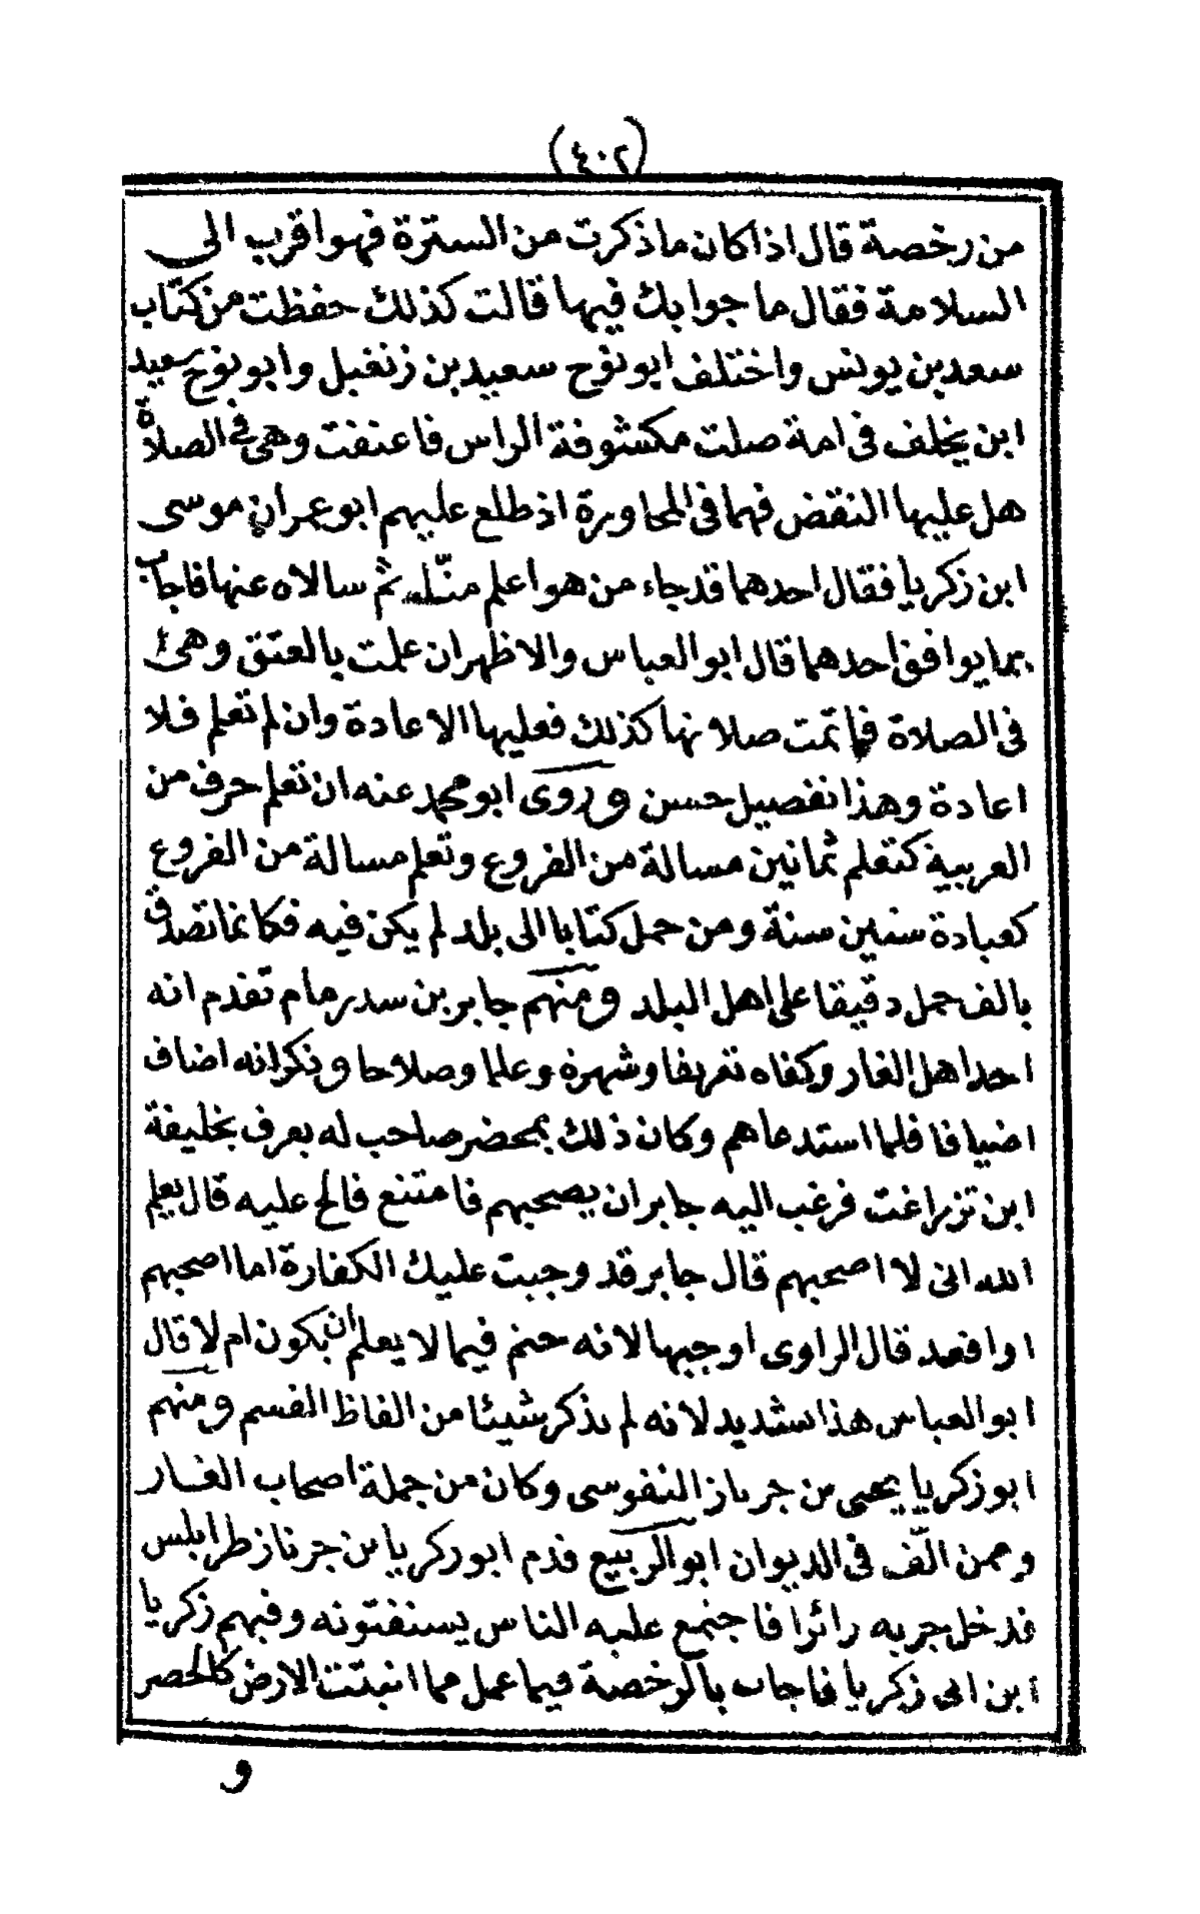 (٤٠٢)
من رخصة قال اذا كان ما ذكرت من السترة فهو اقرب الى
السلامة فقال ما جوابك فيها قالت كذلك حفظت من كتاب
سعد بن يونس واختلف ابو نوح سعيد بن زنغيل وابو نوح سعيد
ابن يخلف فى امة صلت مكشوفة الراس فاعتقت وهى فى الصلاة
هل عليها النقض فهما فى المحاورة اذ طلع عليهم ابو عمران موسى
ابن زكريا فقال احدهما قد جاء من هو اعلم منّا ثم سالاه عنها فاجاب
بما يوافق احدهما قال ابو العباس والاظهر ان علمت بالعتق وهى
فى الصلاة فما تمّت صلاتها كذلك فعليها الاعادة وان لم تعلم فلا
اعادة وهذا تفصيل حسن وروى ابو محمد عنه ان تعلم حرف من
العربية كتعلم ثمانين مسالة من الفروع وتعلم مسالة من الفروع
كعبادة ستين سنة ومن حمل كتابا الى بلد لم يكن فيه فكانما تصدق
بالف حمل دقيقا على اهل البلد ومنهم جابر بن سدرمام تقدم انه
احد اهل الغار وكفاه تعريفا وشهرة وعلما وصلاحا وذكر انه اضاف
اضيافا فلما استدعاهم وكان ذلك بمحضر صاحب له يعرف بخليفة
ابن تزراغت فرغب اليه جابر ان يصحبهم فامتنع فالح عليه قال يعلم
الله انى لا اصحبهم قال جابر قد وجبت عليك الكفارة اما اصحبهم
او اقعد قال الراوى اوجبها لانه حتم فيما لا يعلم ان يكون ام لا قال
ابو العباس هذا شديد لانه لم يذكر شيئا من الفاظ القسم ومنهم
ابو زكريا يحيى بن جرناز النفوسى وكان من جملة اصحاب الغار
وممن الّف فى الديوان ابو الربيع قدم ابو زكريا بن جرناز طرابلس
فدخل جربه زائرا فاجتمع عليه الناس يستفتونه وفيهم زكريا
ابن ابى زكريا فاجاب بالرخصة فيما عمل مما انبتت الارض كالحصر
و